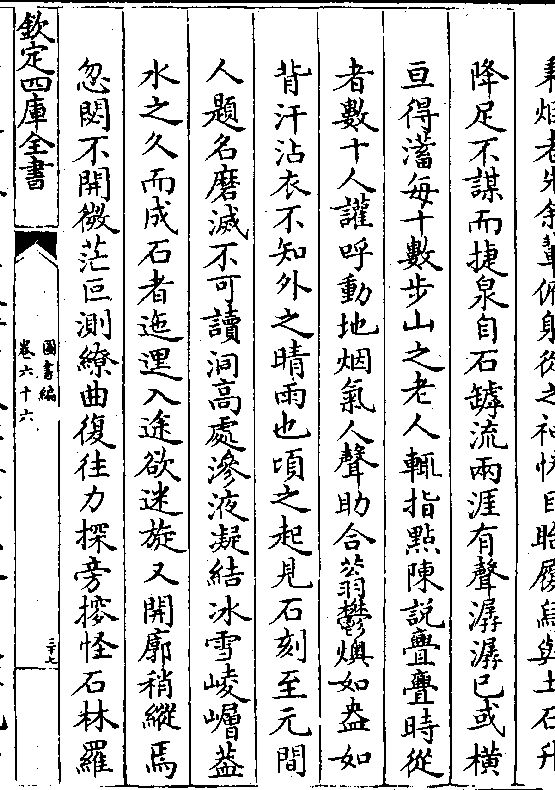 秉炬者先余輩俯躬從之神恍目眙履舄與土石升
降足不謀而捷泉自石罅流兩涯有聲潺潺已或橫
亘得瀦每十數步山之老人輒指點陳說亹亹時從
者數十人讙呼動地烟氣人聲助合蓊鬱燠如盎如
背汗沾衣不知外之晴雨也頃之起見石刻至元間
人題名磨滅不可讀洞高處滲液凝結冰雪崚嶒葢
水之久而成石者迤邐入途欲迷旋又開廓稍縱焉
忽閟不開微茫叵測繚曲復往力探旁搜怪石林羅
欽定四庫全書
圖書編
卷六十六
三十七